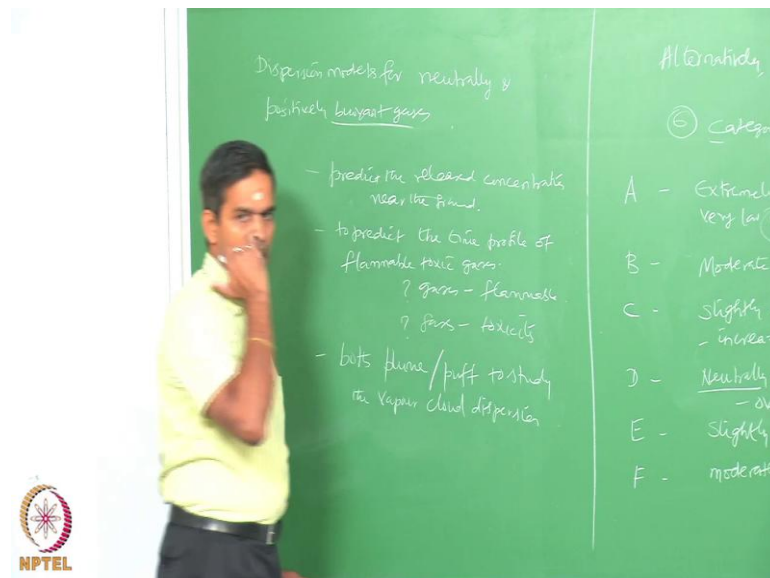 Dispersion models for neutrally &
positively buoyant gases
- predict the released concentration
near the
- to predict the time profile of
flammable toxic gases.
? gases - flammable
? gases - toxicity
- both plume/puff to study
the vapour cloud dispersion
Alternatively,
6 Catego
A - Extremel
very low
B - Moderate
C - Slightly
- increa
D - Neutrally
E - Slightly
F - moderat
NPTEL